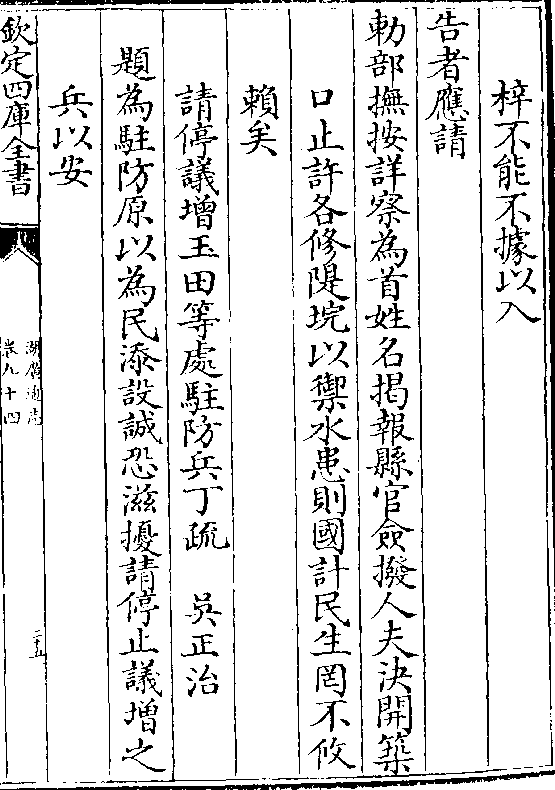 梓不能不據以入
告者應請
勅部撫按詳察為首姓名揭報縣官僉撥人夫決開築
口止許各修隄垸以禦水患則國計民生罔不攸
賴矣
請停議增玉田等處駐防兵丁疏　吳正治
題為駐防原以為民添設誠恐滋擾請停止議增之
兵以安
欽定四庫全書
湖廣通志
卷九十四
二十五